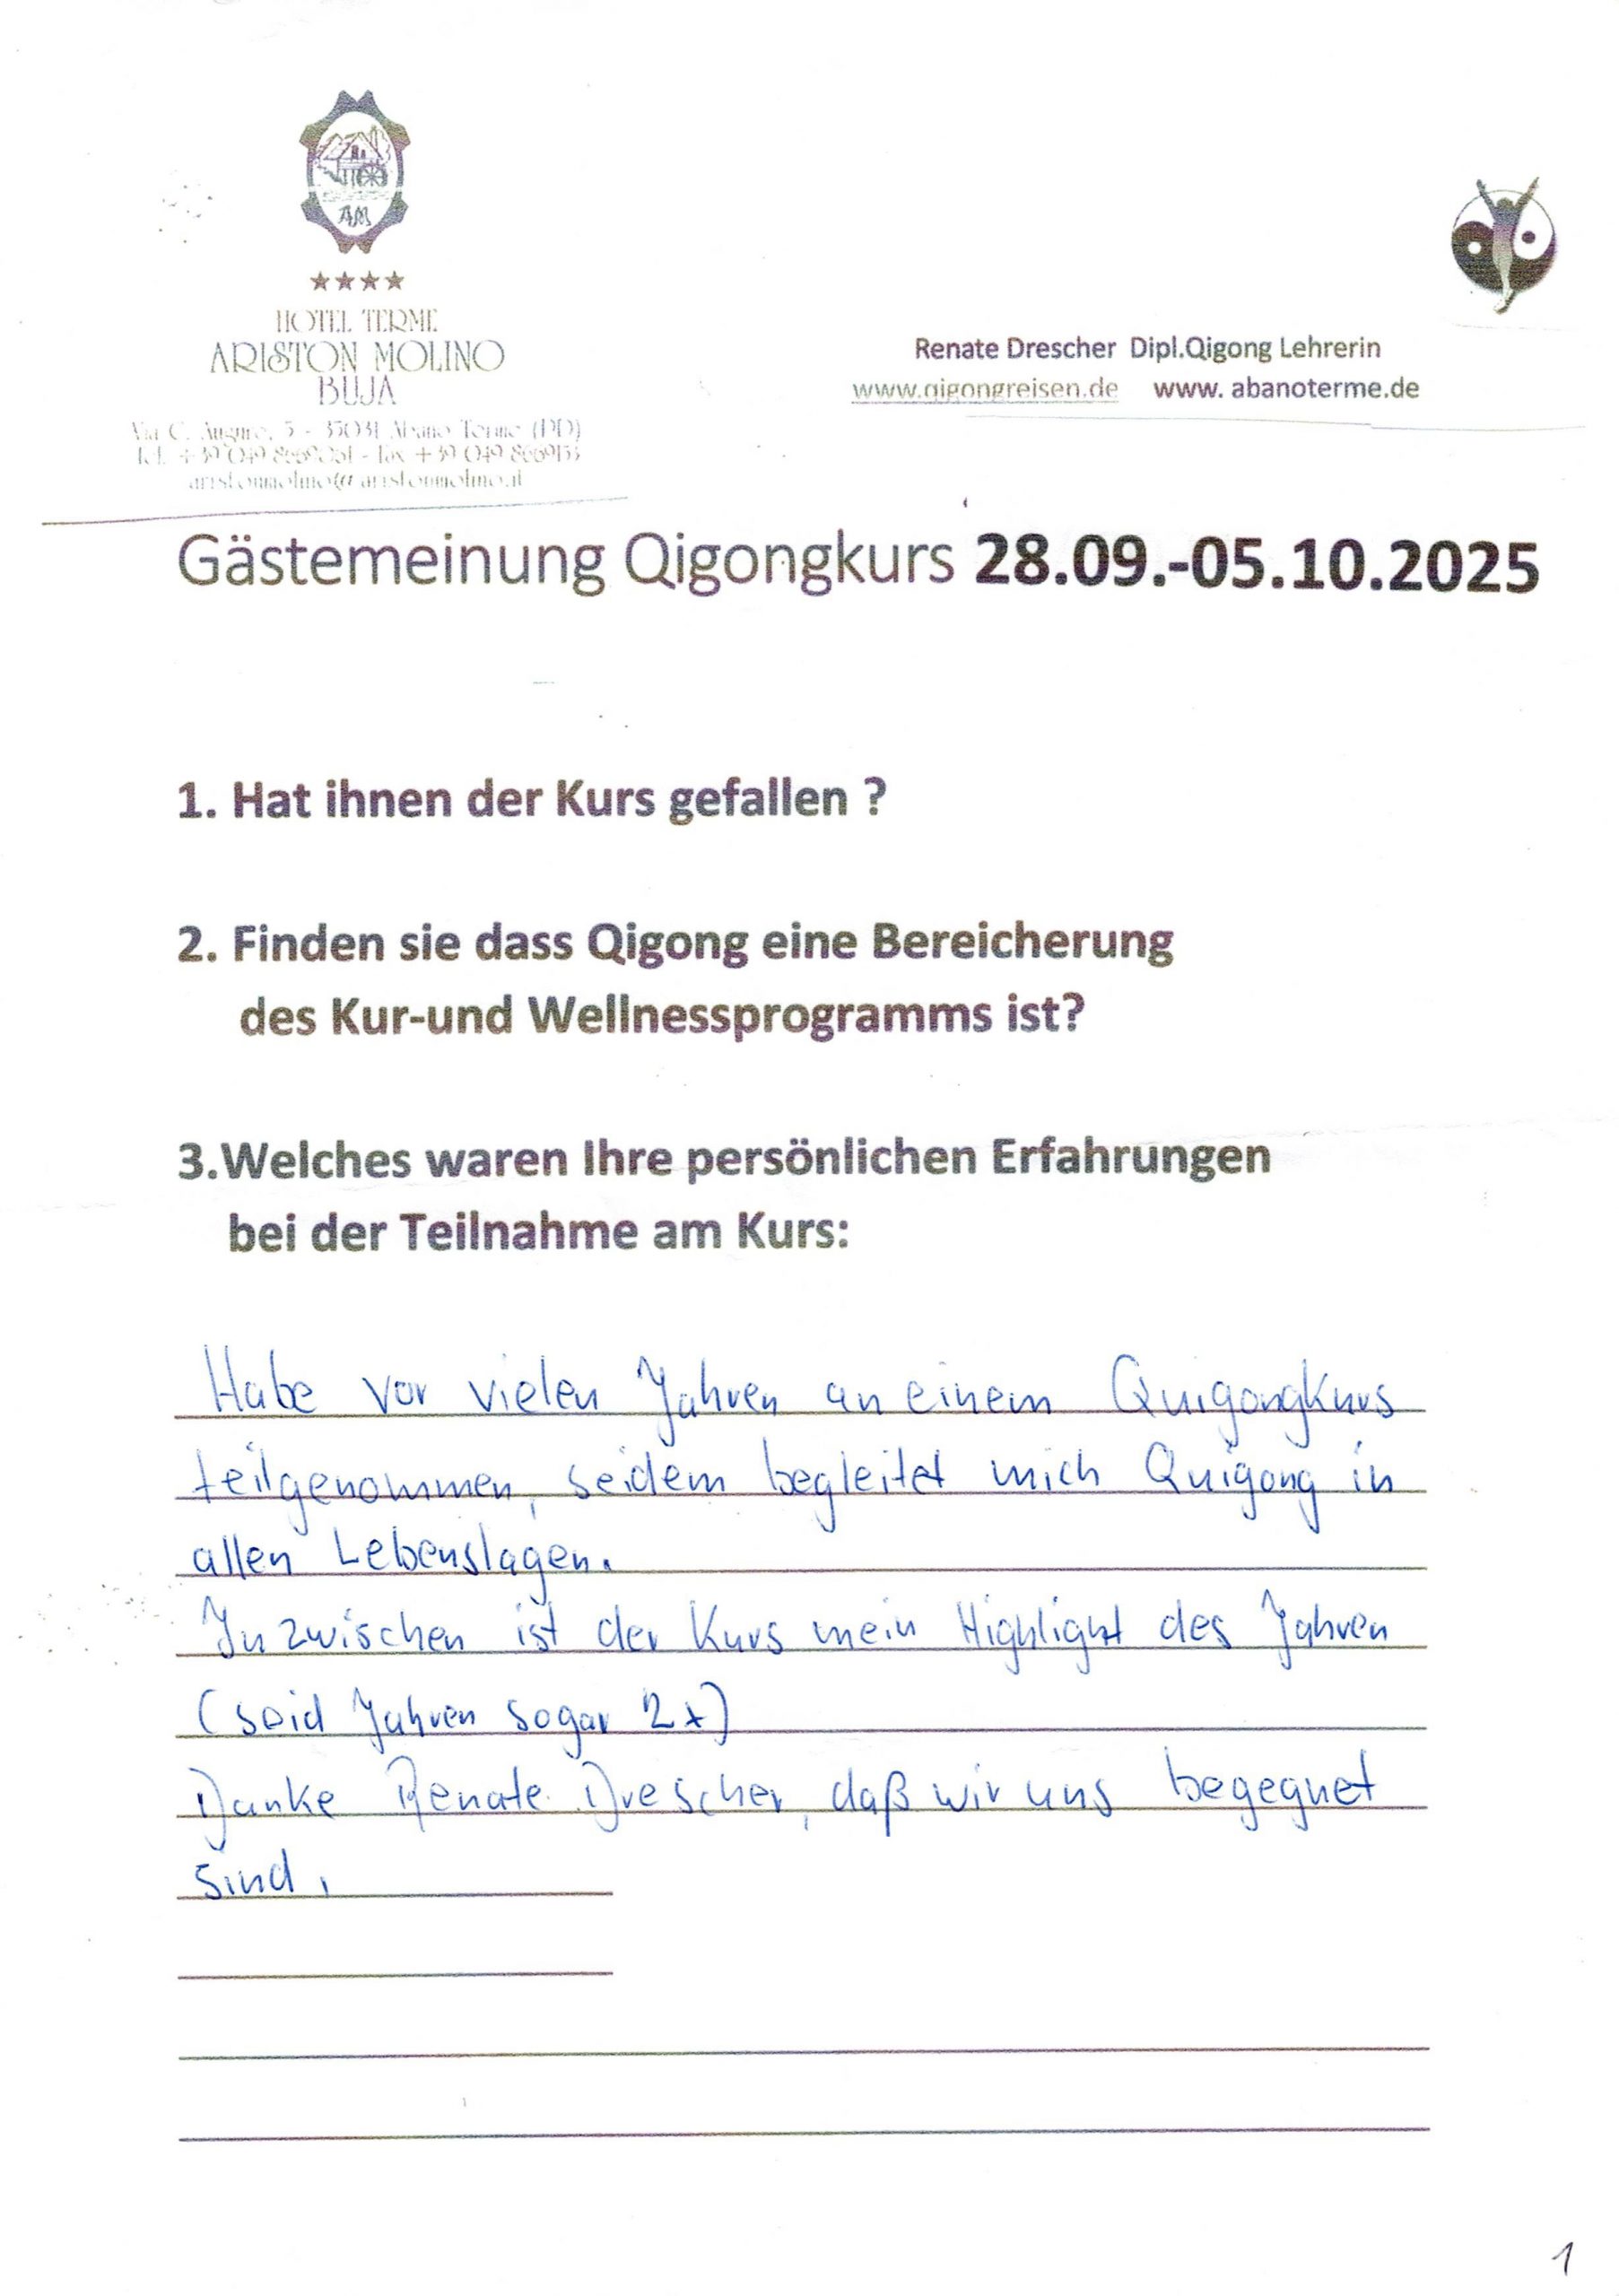 AM
HOTEL TERME
ARISTON MOLINO
BUJA
Via C. Augure, 5 - 35031 Abano Terme (PD)
Tel. +39 049 8669061 - Fax +39 049 8669153
aristonmolino@aristonmolino.it
Renate Drescher Dipl.Qigong Lehrerin
www.qigongreisen.de www. abanoterme.de
Gästemeinung Qigongkurs 28.09.-05.10.2025
1. Hat ihnen der Kurs gefallen ?
2. Finden sie dass Qigong eine Bereicherung
des Kur-und Wellnessprogramms ist?
3.Welches waren Ihre persönlichen Erfahrungen
bei der Teilnahme am Kurs:
Habe vor vielen Jahren an einem Quigongkurs
teilgenommen, seidem begleitet mich Quigong in
allen Lebenslagen.
Inzwischen ist der Kurs mein Highlight des Jahren
(seid Jahren sogar 2x)
Danke Renate Drescher, daß wir uns begegnet
sind.
1